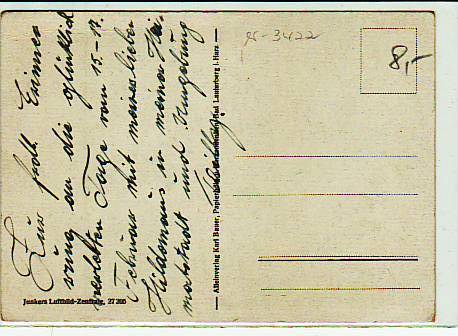 Zur frohl. Erinne-
rung an die glücklich
verlebten Tage vom 15.-19.
Februar mit meiner lieben
Hildemaus in meiner Hei-
matstadt und Umgebung
Junkers Luftbild-Zentrale, 27 205
Alleinverlag Karl Bauer, Bad Lauterberg i. Harz
8,-